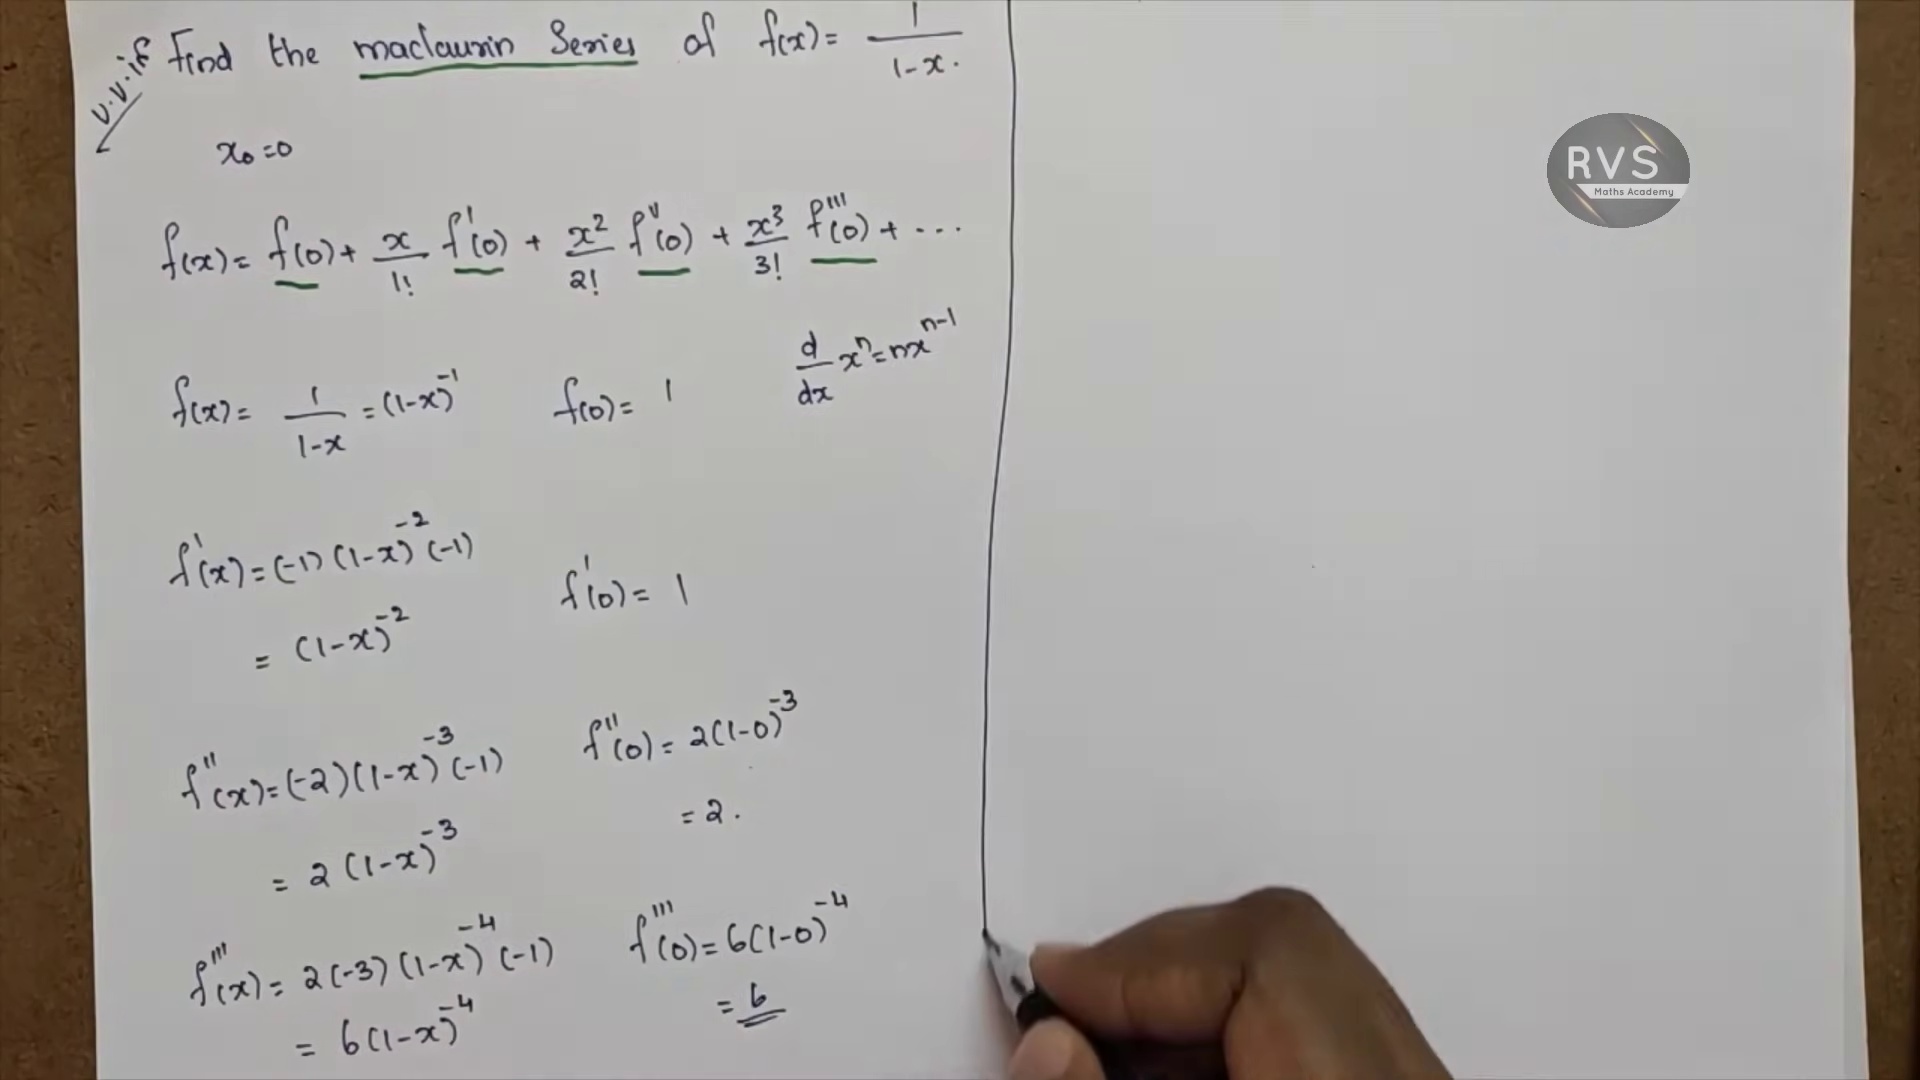 v.v.if Find the maclaurin Series of f(x) = 1/(1-x).
x₀=0
f(x) = f(0) + x/1! f'(0) + x²/2! f''(0) + x³/3! f'''(0) + ...
f(x) = 1/(1-x) = (1-x)⁻¹ f(0) = 1 d/dx xⁿ = nxⁿ⁻¹
f'(x) = (-1)(1-x)⁻²(-1)
= (1-x)⁻² f'(0) = 1
f''(x) = (-2)(1-x)⁻³(-1) f''(0) = 2(1-0)⁻³
= 2(1-x)⁻³ = 2.
f'''(x) = 2(-3)(1-x)⁻⁴(-1) f'''(0) = 6(1-0)⁻⁴
= 6(1-x)⁻⁴ = 6
RVS
Maths Academy